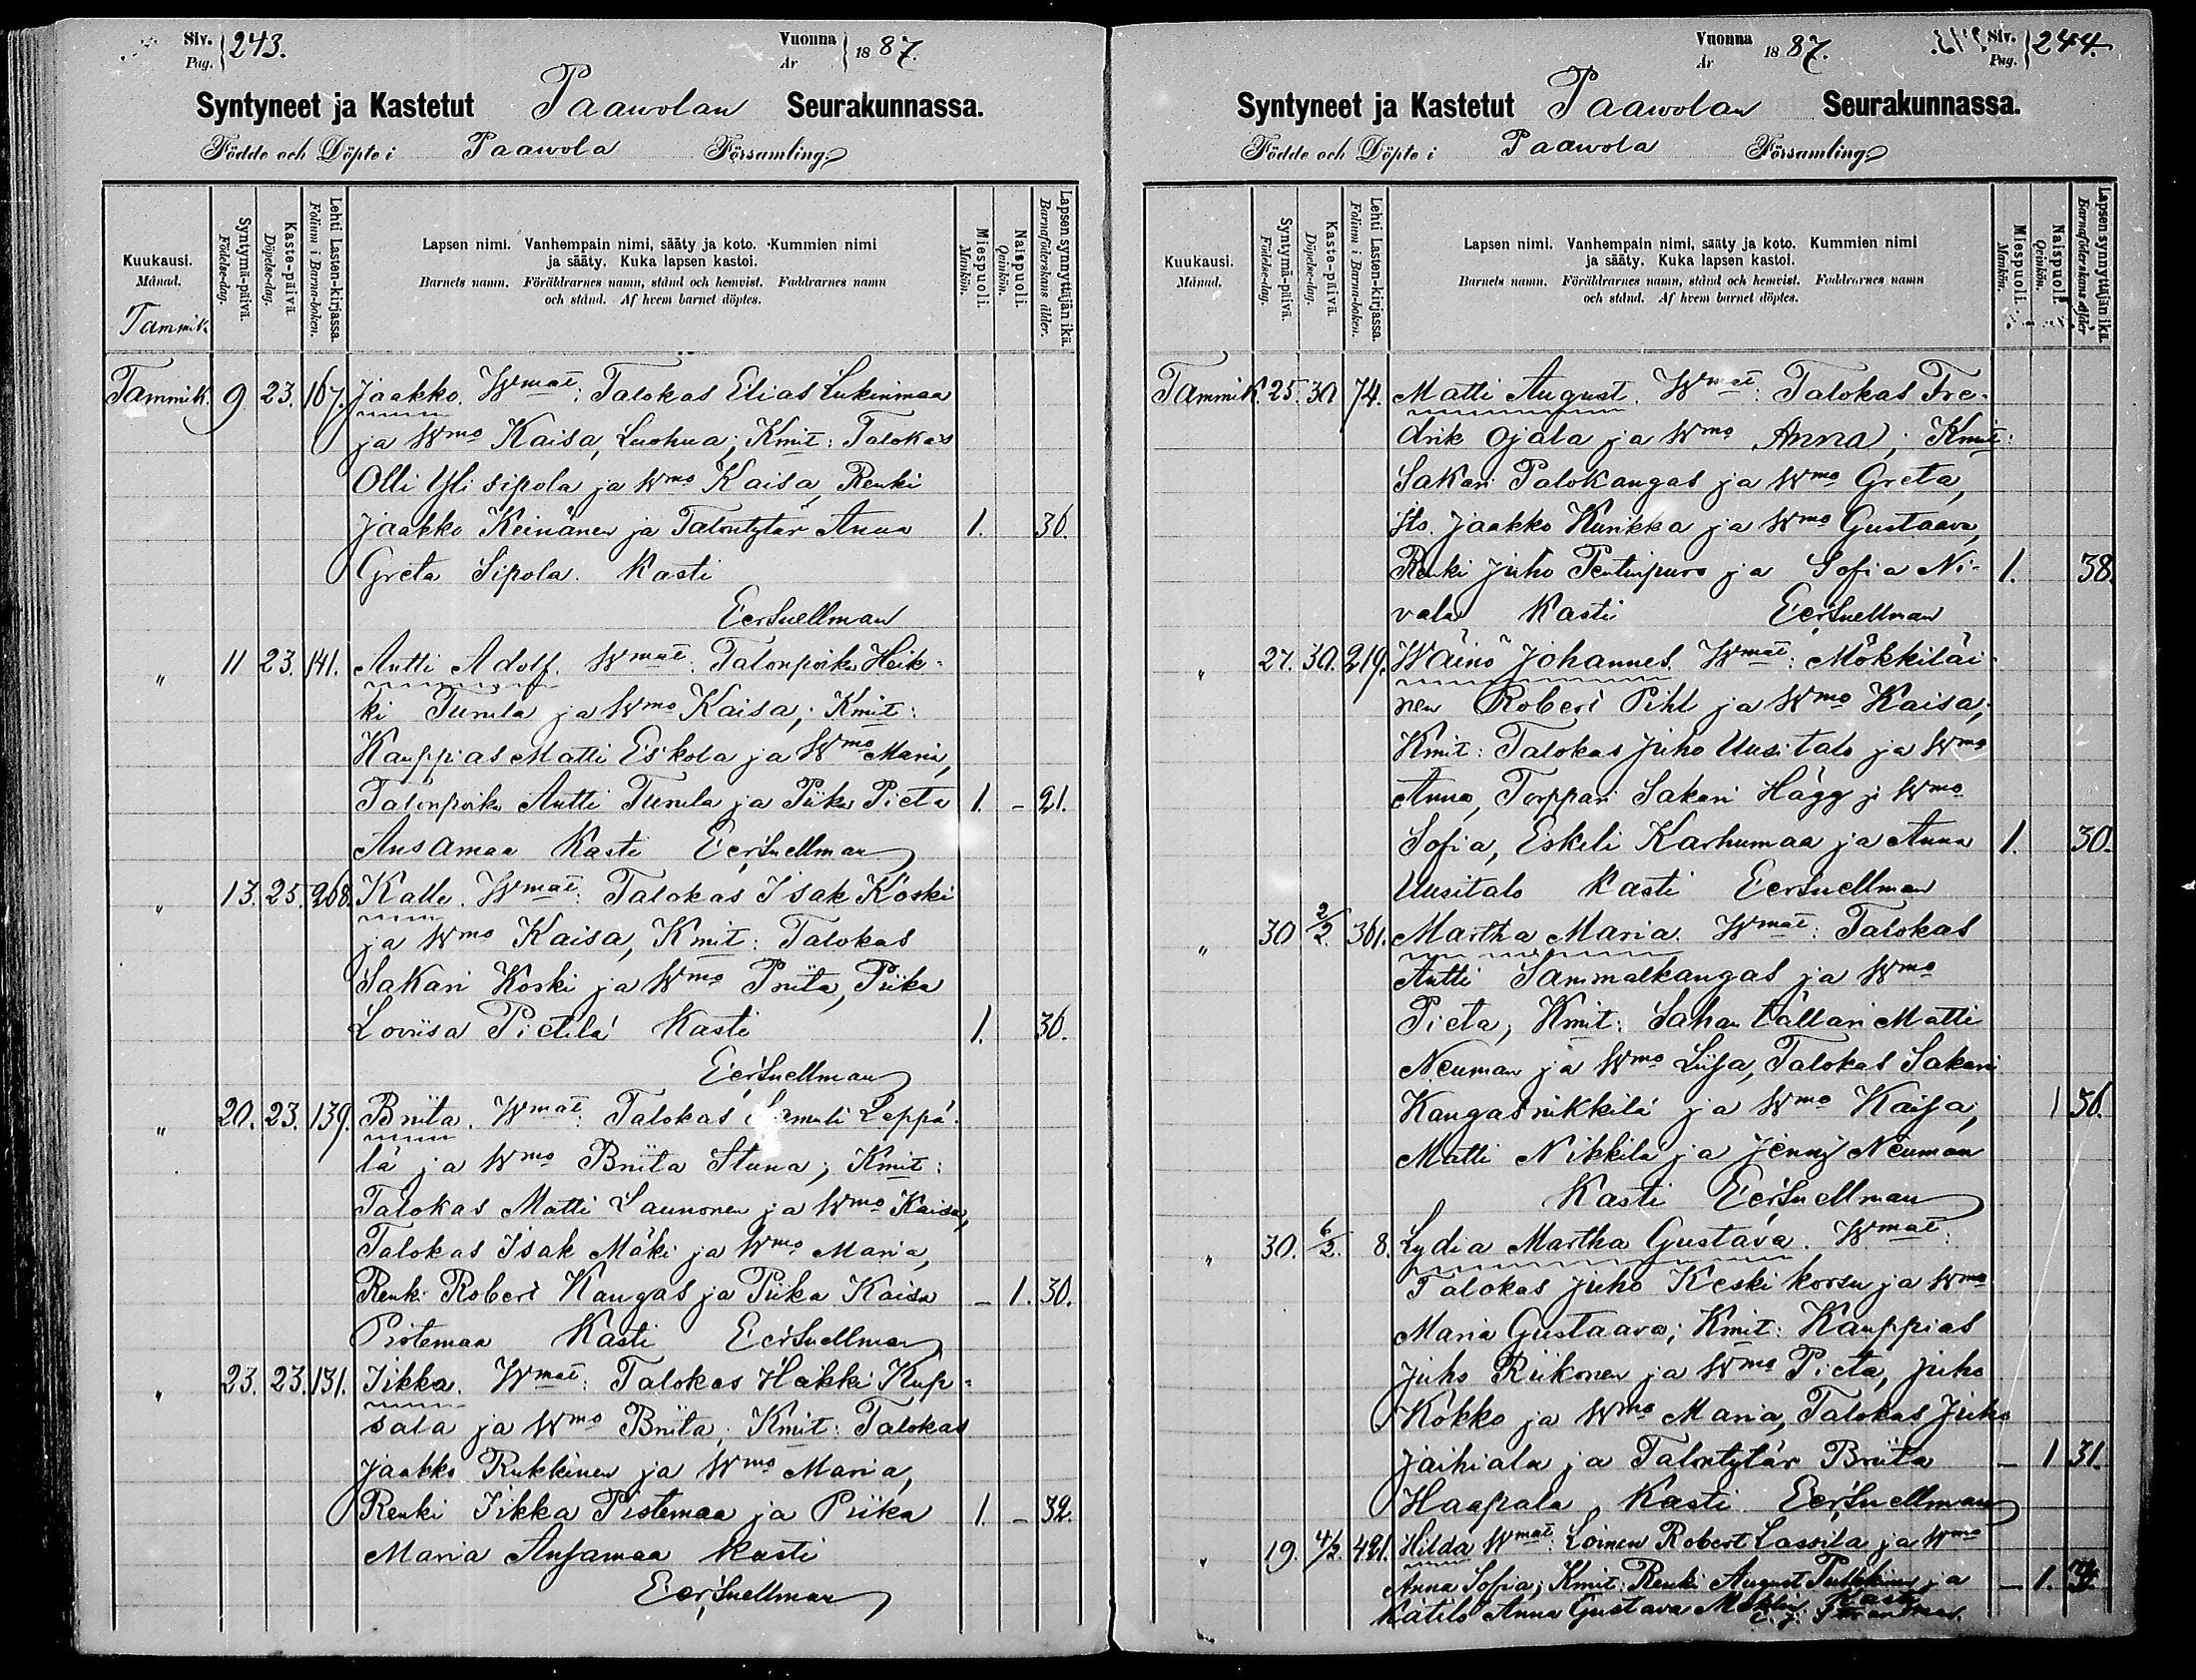 Siv. Pag. 243.
Vuonna År 1887.
Syntyneet ja Kastetut Paawolan Seurakunnassa.
Födde och Döpte i Paawola Församling
Kuukausi. Månad.
Syntymä-päivä. Födelse-dag.
Kaste-päivä Döpelse-dag.
Lehti Lasten-kirjassa. Folium i Barna-boken.
Lapsen nimi. Vanhempain nimi, sääty ja koto. Kummien nimi
ja sääty. Kuka lapsen kastoi.
Barnets namn. Föräldrarnes namn, stånd och hemvist. Faddrarnes namn
och stånd. Af hvem barnet döptes.
Miespuoli. Mankön.
Naispuoli. Qvinkön.
Lapsen synnyttäjän ikä. Barnaföderskans ålder.
Tammik.
Tammik. 9 23. 167. Jaakko. Wmat: Talokas Elias Lukinmaa
ja Wmo Kaisa, Luohua; Kmit: Talokas
Olli Yli sipola ja Wmo Kaisa, Renki
Jaakko Keinänen ja Talontytär Anna 1. 36.
Greta Sipola. Kasti
EerSnellman
" 11 23. 141. Antti Adolf. Wmat: Talonpoika Heik-
ki Turula ja Wmo Kaisa; Kmit:
Kauppias Matti Eskola ja Wmo Maria,
Talonpoika Antti Turula ja Piika Pieta 1. - 21.
Ansamaa Kasti EerSnellman
" 13. 25. 268. Kalle. Wmat: Talokas Isak Koski
ja Wmo Kaisa, Kmit: Talokas
Sakari Koski ja Wmo Priita, Piika
Loviisa Pietilä Kasti 1. 36.
EerSnellman
" 20. 23. 139. Briita. Wmat: Talokas Samuli Leppä-
lä ja Wmo Briita Stuna; Kmit:
Talokas Matti Launonen ja Wmo Kaisa,
Talokas Isak Mäki ja Wmo Maria,
Renki Robert Kangas ja Piika Kaisa - 1. 30.
Pistemaa Kasti EerSnellman
" 23. 23. 131. Iikka. Wmat: Talokas Heikki Kup-
sala ja Wmo Briita; Kmit: Talokas
Jaakko Rukkinen ja Wmo Maria,
Renki Iikka Pistemaa ja Piika 1. - 32.
Maria Ansamaa Kasti
EerSnellman
Vuonna År 1887.
Siv. Pag. 244.
Syntyneet ja Kastetut Paawolan Seurakunnassa.
Födde och Döpte i Paawola Församling
Kuukausi. Månad.
Syntymä-päivä. Födelse-dag.
Kaste-päivä. Döpelse-dag.
Lehti Lasten-kirjassa Folium i Barna-boken.
Lapsen nimi. Vanhempain nimi, sääty ja koto. Kummien nimi
ja sääty. Kuka lapsen kastoi.
Barnets namn. Föräldrarnes namn, stånd och hemvist. Faddrarnes namn
och stånd. Af hvem barnet döptes.
Miespuoli. Mankön.
Naispuoli. Qvinkön.
Lapsen synnyttäjän ikä. Barnaföderskans ålder
Tammik. 25. 30 74. Matti August. Wmat: Talokas Fre-
drik Ojala ja Wmo Anna; Kmit:
Sakari Palokangas ja Wmo Greta,
Its. Jaakko Kurikka ja Wmo Gustaava,
Renki Juho Pentinpuro ja Sofia Ni- 1. 38.
vala Kasti EerSnellman
" 27. 30. 219. Wäinö Johannes. Wmat: Mökkiläi-
nen Robert Pihl ja Wmo Kaisa;
Kmit: Talokas Juho Uusitalo ja Wmo
Anna, Torppari Sakari Hägg ja Wmo
Sofia, Eskeli Karhumaa ja Anna 1. 30.
Uusitalo Kasti EerSnellman
" 30 2/2 361. Martha Maria. Wmat: Talokas
Antti Sammalkangas ja Wmo
Pieta; Kmit: Sahan tällari Matti
Neuman ja Wmo Liisa, Talokas Sakari
Kangasnikkilä ja Wmo Kaisa, 1 36.
Matti Nikkilä ja Jenny Neuman
Kasti EerSnellman
" 30. 6/2. 8. Lydia Martha Gustava. Wmat:
Talokas Juho Keskikorsu ja Wmo
Maria Gustaava; Kmit: Kauppias
Juho Riikonen ja Wmo Pieta, Juho
Kokko ja Wmo Maria, Talokas Juho
Jaihiala ja Talontytär Briita - 1 31.
Haapala, Kasti EerSnellman
" 19. 4/2. 421. Hilda Wmat: Loinen Robert Lassila ja Wmo
Anna Sofia; Kmit: Renki August ja - 1.
Kätilö Anna Gustava Kasti